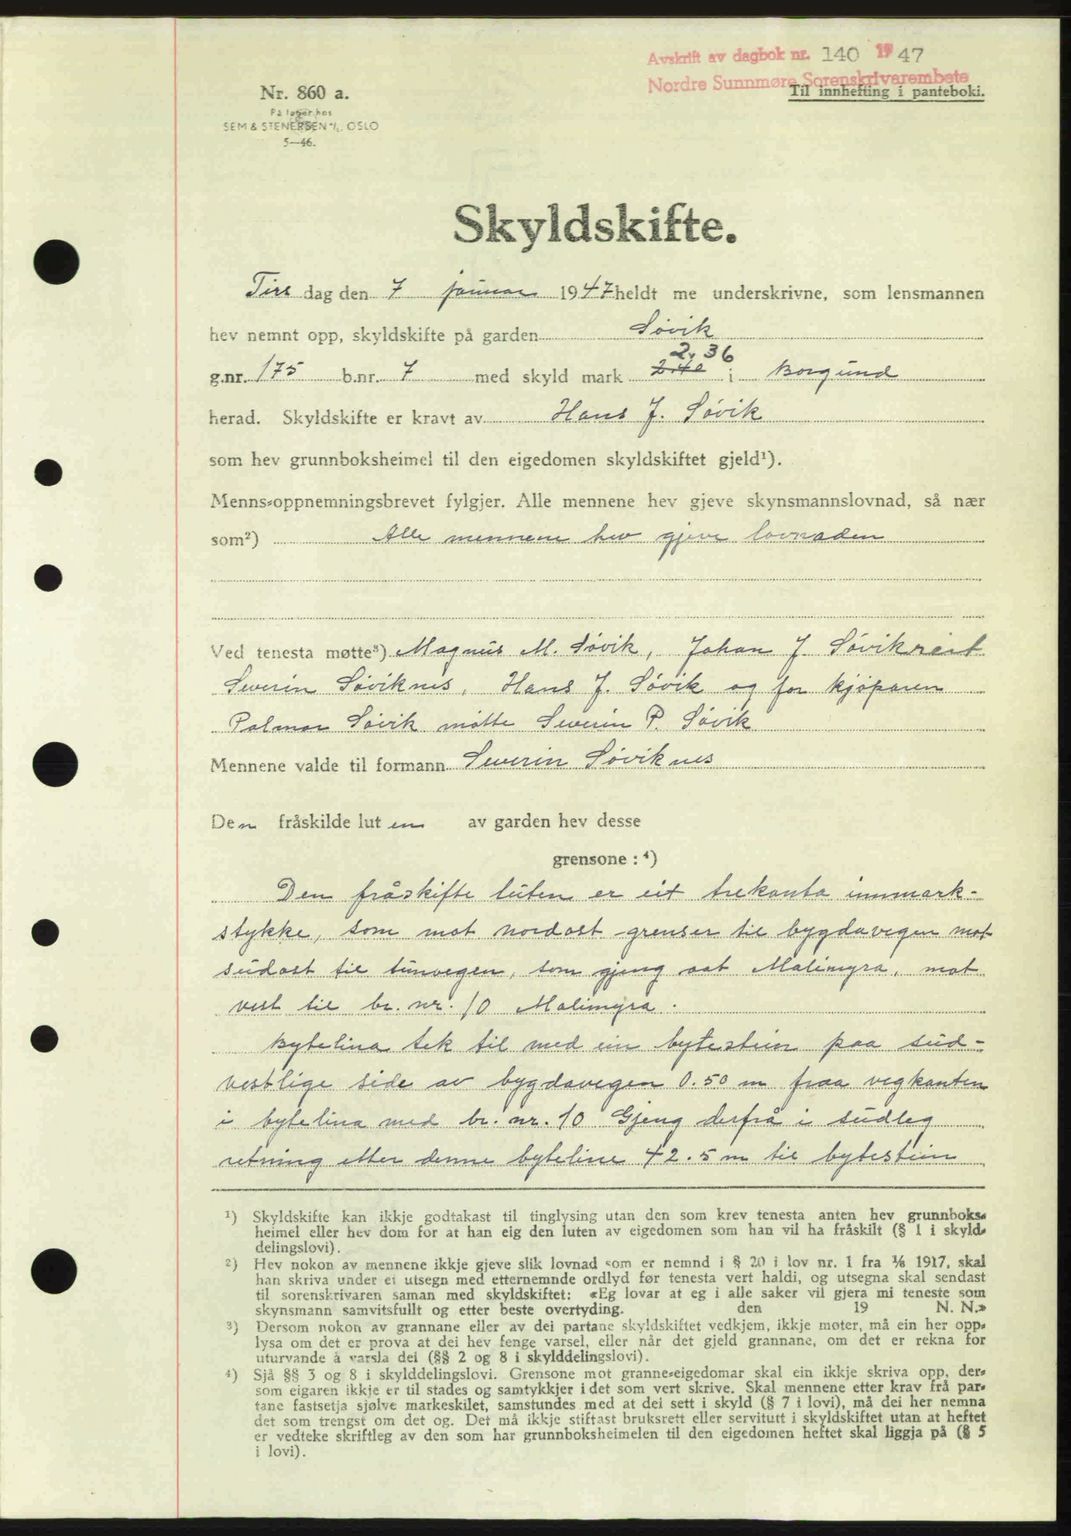 Avskrift av dagbok nr. 140 1947
Nordre Sunnmøre Sorenskrivarembete
Til innhefting i panteboki.
Nr. 860 a.
På lager hos
SEM & STENERSEN A/S. OSLO
5—46.
Skyldskifte.
Tirs dag den 7 januar 1947 heldt me underskrivne, som lensmannen
hev nemnt opp, skyldskifte på garden Søvik
2,36
g.nr. 175 b.nr. 7 med skyld mark 2.40 i Borgund
herad. Skyldskifte er kravt av Hans J. Søvik
som hev grunnboksheimel til den eigedomen skyldskiftet gjeld¹).
Menns-oppnemningsbrevet fylgjer. Alle mennene hev gjeve skynsmannslovnad, så nær
som²) Alle mennene hev gjeve lovnaden
Ved tenesta møtte³) Magnus M. Søvik, Johan J. Søvikneset
Severin Søviknes, Hans J. Søvik og for kjøparen
Palmar Søvik møtte Severin P. Søvik
Mennene valde til formann Severin Søviknes
Den fråskilde luten av garden hev desse
grensone : ⁴)
Den fråskifte luten er eit trekanta innmark-
stykke, som mot nordost grenser til bygdavegen mot
südost til tunvegen, som gjeng aat Malimyra, mot
vest til br. nr. 10 Malimyra.
Bytelina tek til med ein bytestein paa süd-
vestlige side av bygdavegen 0.50 m fraa vegkanten
i bytelina med br. nr. 10 Gjeng derfrå i südleg
retning etter denne byteline 42.5 m til bytestein
¹) Skyldskifte kan ikkje godtakast til tinglysing utan den som krev tenesta anten hev grunnboks-
heimel eller hev dom for at han eig den luten av eigedomen som han vil ha fråskilt (§ 1 i skyld-
delingslovi).
²) Hev nokon av mennene ikkje gjeve slik lovnad som er nemnd i § 20 i lov nr. 1 fra 1/6 1917, skal
han skriva under ei utsegn med etternemnde ordlyd før tenesta vert haldi, og utsegna skal sendast
til sorenskrivaren saman med skyldskiftet: «Eg lovar at eg i alle saker vil gjera mi teneste som
skynsmann samvitsfullt og etter beste overtyding. den 19 N. N.»
³) Dersom nokon av grannane eller av dei partane skyldskiftet vedkjem, ikkje møter, må ein her opp-
lysa om det er prova at dei hev fenge varsel, eller når det gjeld grannane, om det er rekna for
uturvande å varsla dei (§§ 2 og 8 i skylddelingslovi).
⁴) Sjå §§ 3 og 8 i skylddelingslovi. Grensone mot granne-eigedomar skal ein ikkje skriva opp, der-
som eigaren ikkje er til stades og samtykkjer i det som vert skrive. Skal mennene etter krav frå par-
tane fastsetja sjølve markeskilet, samstundes med at dei sett i skyld (§ 7 i lovi), må dei her nemna
det som trengst om det og. Det må ikkje stiftast bruksrett eller servitutt i skyldskiftet utan at heftet
er vedteke skriftleg av den som har grunnboksheimelen til den eigedomen heftet skal liggja på (§ 5
i lovi).